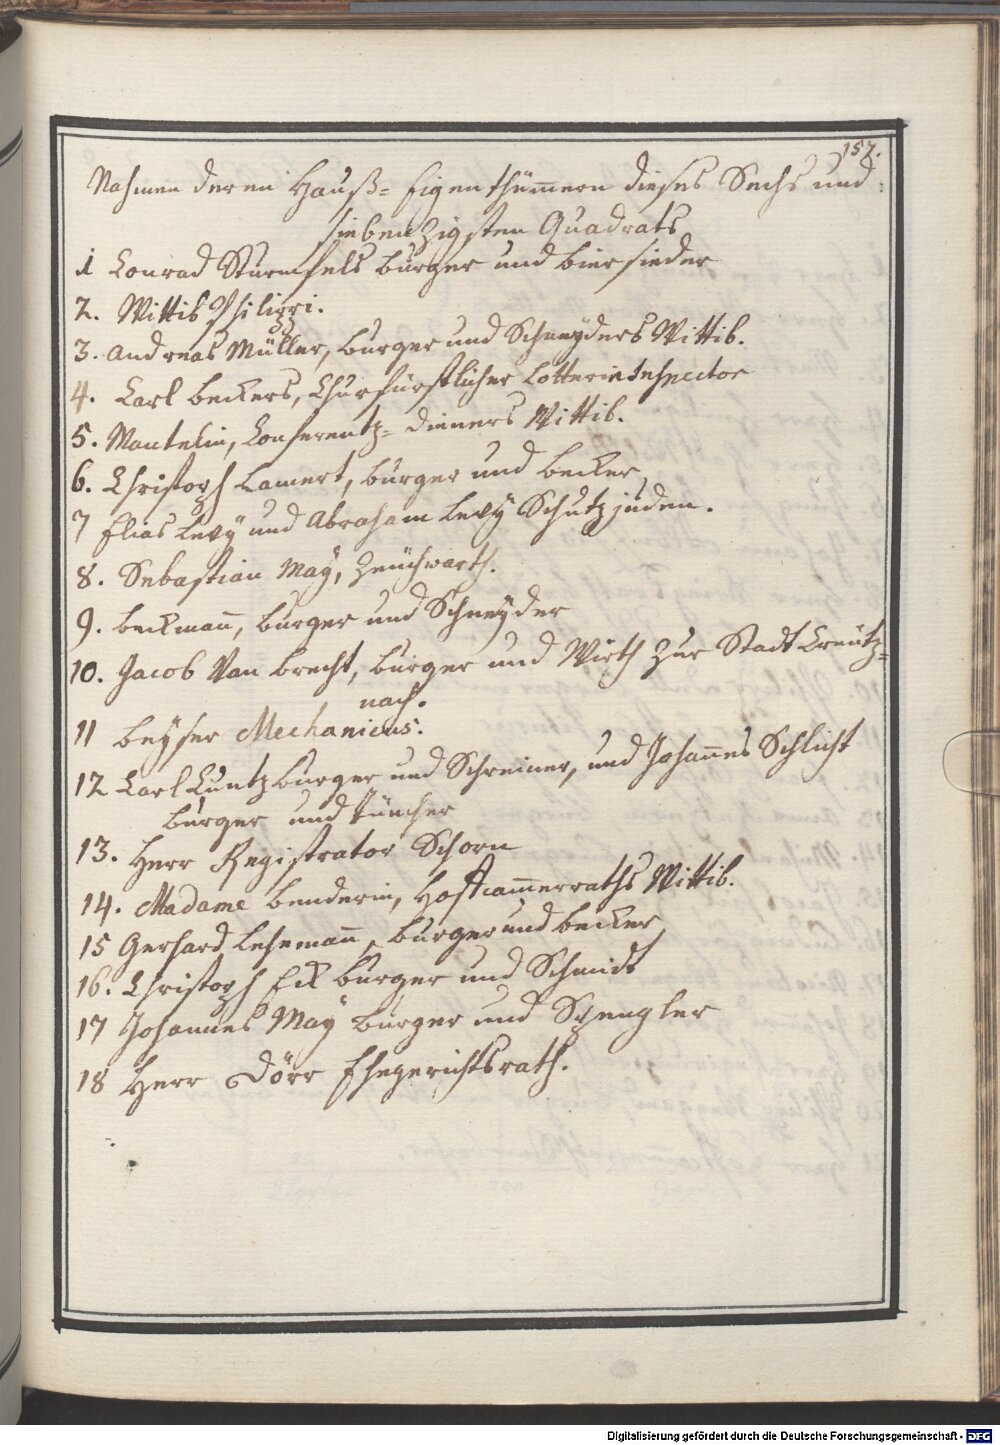 157.
Nahmen deren Hauß= Eigenthümern dieses Sechs und
siebenzigsten Quadrats
1 Conrad Sturmfels burger und biersieder
2. Wittib Philippi.
3. Andreas Müller, burger und Schneyders Wittib.
4. Carl beckers, Churfürstlicher Lotterie Inspector
5. Mantelin, Conferentz= dieners Wittib.
6. Christoph Lamert, burger und becker,
7 Elias Levy und Abraham Levy Schutzjuden.
8. Sebastian May, Zeüchwarth.
9. beckmann, burger und Schneyder
10. Jacob Van brecht, burger und Wirth zur Stadt Creütz=
nach.
11 beyser Mechanicus.
12 Carl Cuntz burger und Schreiner, und Johannes Schlicht
burger und Tüncher
13. Herr Registrator Schorn
14. Madame benderin, Hofcammerraths Wittib.
15 Gerhard Lehemann, burger und becker,
16. Christoph Eck burger und Schmidt
17 Johannes May burger und Spengler
18 Herr Dörr Ehegerichtsrath.
Digitalisierung gefördert durch die Deutsche Forschungsgemeinschaft - DFG